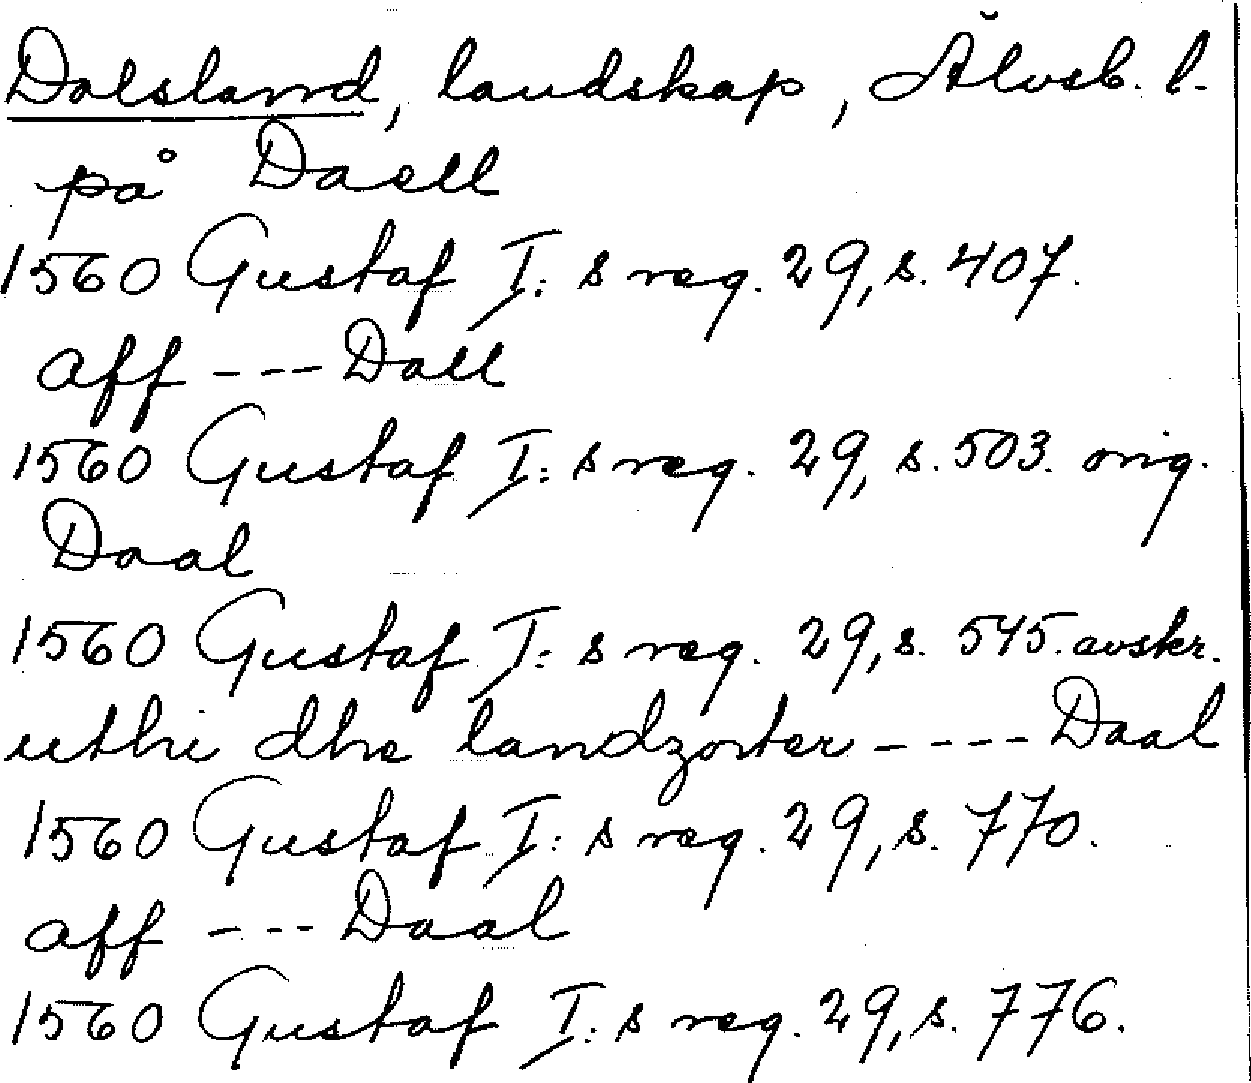 Dalsland, landskap, Älvsb. l.
på Daell
1560 Gustaf I:s reg. 29, s. 407.
aff --- Dall
1560 Gustaf I:s reg. 29, s. 503. orig.
Daal
1560 Gustaf I:s reg. 29, s. 545. avskr.
uthi dhe landzorter ---- Daal
1560 Gustaf I:s reg. 29, s. 770.
aff --- Daal
1560 Gustaf I:s reg. 29, s. 776.